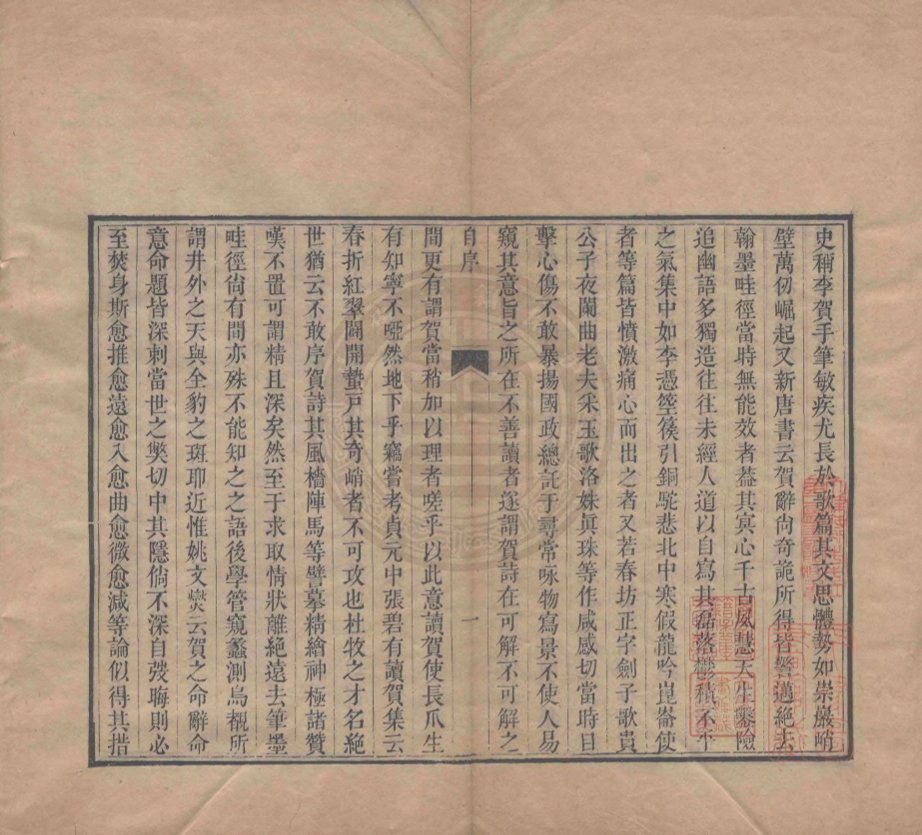 史稱李賀手筆敏疾尤長於歌篇其文思體勢如崇巖峭
壁萬仞崛起又新唐書云賀辭尚奇詭所得皆警邁絕去
翰墨畦徑當時無能效者葢其寞心千古夙慧天生鑿險
追幽語多獨造往往未經人道以自寫其磊落鬱積不平
之氣集中如李憑箜篌引銅駝悲北中寒假龍吟崑崙使
者等篇皆憤激痛心而出之者又若春坊正字劍子歌貴
公子夜闌曲老夫采玉歌洛姝眞珠等作咸感切當時目
擊心傷不敢暴揚國政總託于尋常咏物寫景不使人易
窺其意旨之所在不善讀者遂謂賀詩在可解不可解之
自序
一
間更有謂賀當稍加以理者嗟乎以此意讀賀使長爪生
有知寧不啞然地下乎竊嘗考貞元中張碧有讀賀集云
春折紅翠闢開蟄戸其奇峭者不可攻也杜牧之才名絕
世猶云不敢序賀詩其風檣陣馬等譬摹精繪神極諸贊
嘆不置可謂精且深矣然至于求取情狀離絕遠去筆墨
畦徑尚有間亦殊不能知之之語後學管窺蠡測烏覩所
謂井外之天與全豹之斑耶近惟姚文爕云賀之命辭命
意命題皆深刺當世之獘切中其隱倘不深自弢晦則必
至焚身斯愈推愈遠愈入愈曲愈微愈減等論似得其措